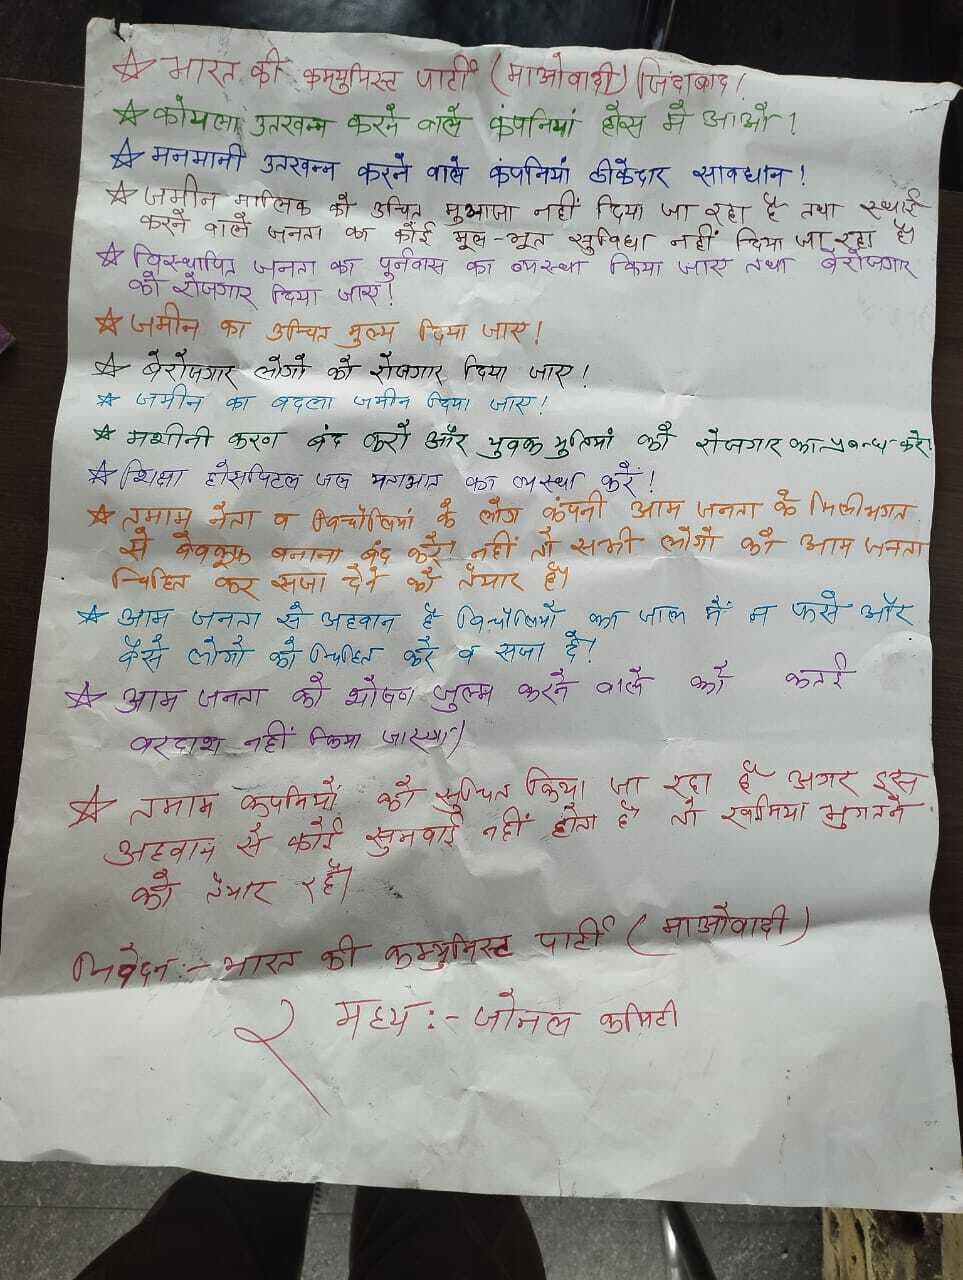 ☆ भारत की कम्युनिस्ट पार्टी (माओवादी) जिंदाबाद!
☆ कोयला उतखन्न करने वाले कंपनियां होस मे आओ!
☆ मनमानी उतखन्न करने वाले कंपनियां ठीकेदार सावधान!
☆ जमीन मालिक को उचित मुआजा नहीं दिया जा रहा है तथा स्थाई
करने वाले जनता का कोई मूल-भूत सुविधा नहीं दिया जा रहा है।
☆ विस्थापित जनता का पुर्नवास का व्यस्था किया जाए तथा बेरोजगार
को रोजगार दिया जाए!
☆ जमीन का उचित मुल्य दिया जाए!
☆ बेरोजगार लोगों को रोजगार दिया जाए!
☆ जमीन का बदला जमीन दिया जाए!
☆ मशीनी करण बंद करो और युवक युतियां को रोजगार का प्रबन्ध करे!
☆ शिक्षा होसपिटल जल का व्यस्था करें!
☆ तमाम नेता व विचौलियां के लोग कंपनी आम जनता के मिलीभगत
से वेवकूफ बनाना बंद करे। नहीं तो सभी लोगों को आम जनता
चिहित कर सजा देने को तैयार है।
☆ आम जनता से अहवान है विचौलियों का जाल में न फसे और
वैसे लोगो को चिहित करे व सजा दे!
☆ आम जनता को शोषण जुल्म करने वाले को कतई
वरदाश नहीं किया जाएगा)
☆ तमाम कंपनियों को सुचित किया जा रहा है अगर इस
अहवान से कोई सुनवाई नहीं होता है तो खामिया भुगतने
को तैयार रहें।
निवेदन :- भारत की कम्युनिस्ट पार्टी (माओवादी)
मध्य :- जोनल कमिटी